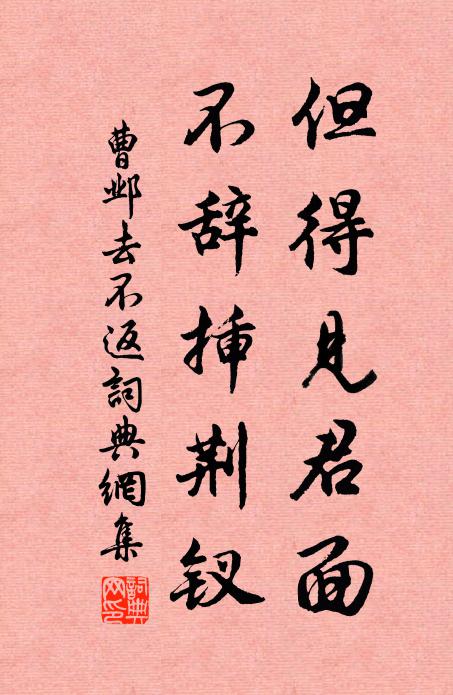 但得见君面
不辞插荆钗
曹邺去不返詞典網集
詞典